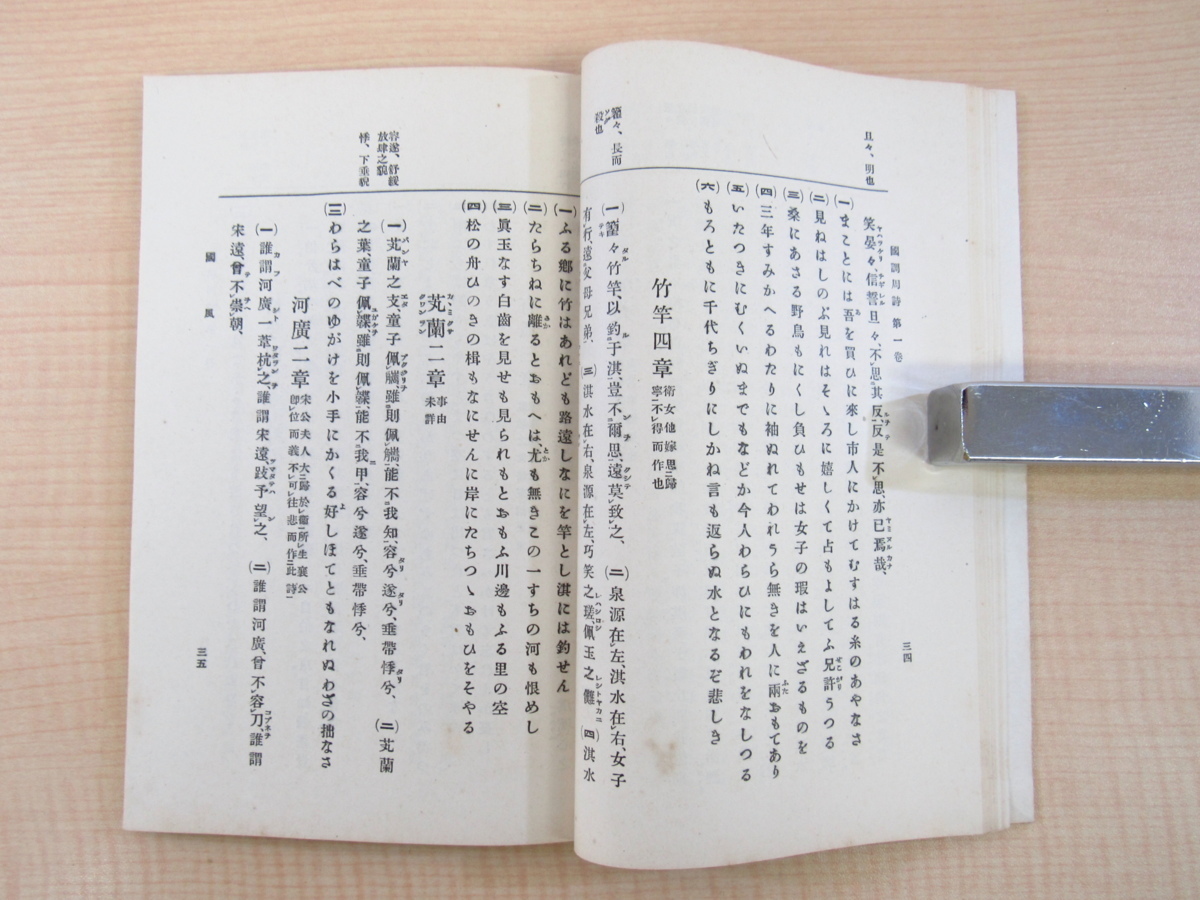 國訓周詩 第一卷
旦々、明也
笑晏々、信誓旦々、不思其反、反是不思、亦已焉哉、
(一)まことには吾を買ひに來し市人にかけてむすはる糸のあやなさ
(二)見ねはしのぶ見れはそゝろに嬉しくて占もよしてふ兄許うつる
(三)桑にあさる野鳥もにくし負ひもせは女子の瑕はいえざるものを
(四)三年すみかへるわたりに袖ぬれてわれうら無きを人に兩おもてあり
(五)いたつきにむくいぬまでもなどか今人わらひにもわれをなしつる
(六)もろともに千代ちぎりにしかね言も返らぬ水となるぞ悲しき
竹竿四章 衛女他嫁思歸
寧不得而作也
籊々、長而
殺也
(一)籊々竹竿、以釣于淇、豈不爾思、遠莫致之、 (二)泉源在左、淇水在右、女子
有行、遠父母兄弟、 (三)淇水在右、泉源在左、巧笑之瑳、佩玉之儺、 (四)淇水
三四
(一)ふる鄕に竹はあれども路遠しなにを竿とし淇には釣せん
(二)たらちねに離るとおもへは、尤も無きこの一すちの河も恨めし
(三)眞玉なす白齒を見せも見られもとおもふ川邊もふる里の空
(四)松の舟ひのきの楫もなにせんに岸にたちつゝおもひをそやる
芄蘭二章 事由
未詳
容遂、舒緩
放肆之貌
悸、下垂貌
(一)芄蘭之支、童子佩觽、雖則佩觽、能不我知、容兮遂兮、垂帶悸兮、 (二)芄蘭
之葉、童子佩韘、雖則佩韘、能不我甲、容兮遂兮、垂帶悸兮、
(三)わらはべのゆがけを小手にかくる好しほてともなれぬわざの拙なさ
河廣二章 宋公夫人大歸於衛所生襄公
卽位而義不可往悲而作此詩
(一)誰謂河廣、一葦杭之、誰謂宋遠、跂予望之、 (二)誰謂河廣、曾不容刀、誰謂
宋遠、曾不崇朝、
國風
三五